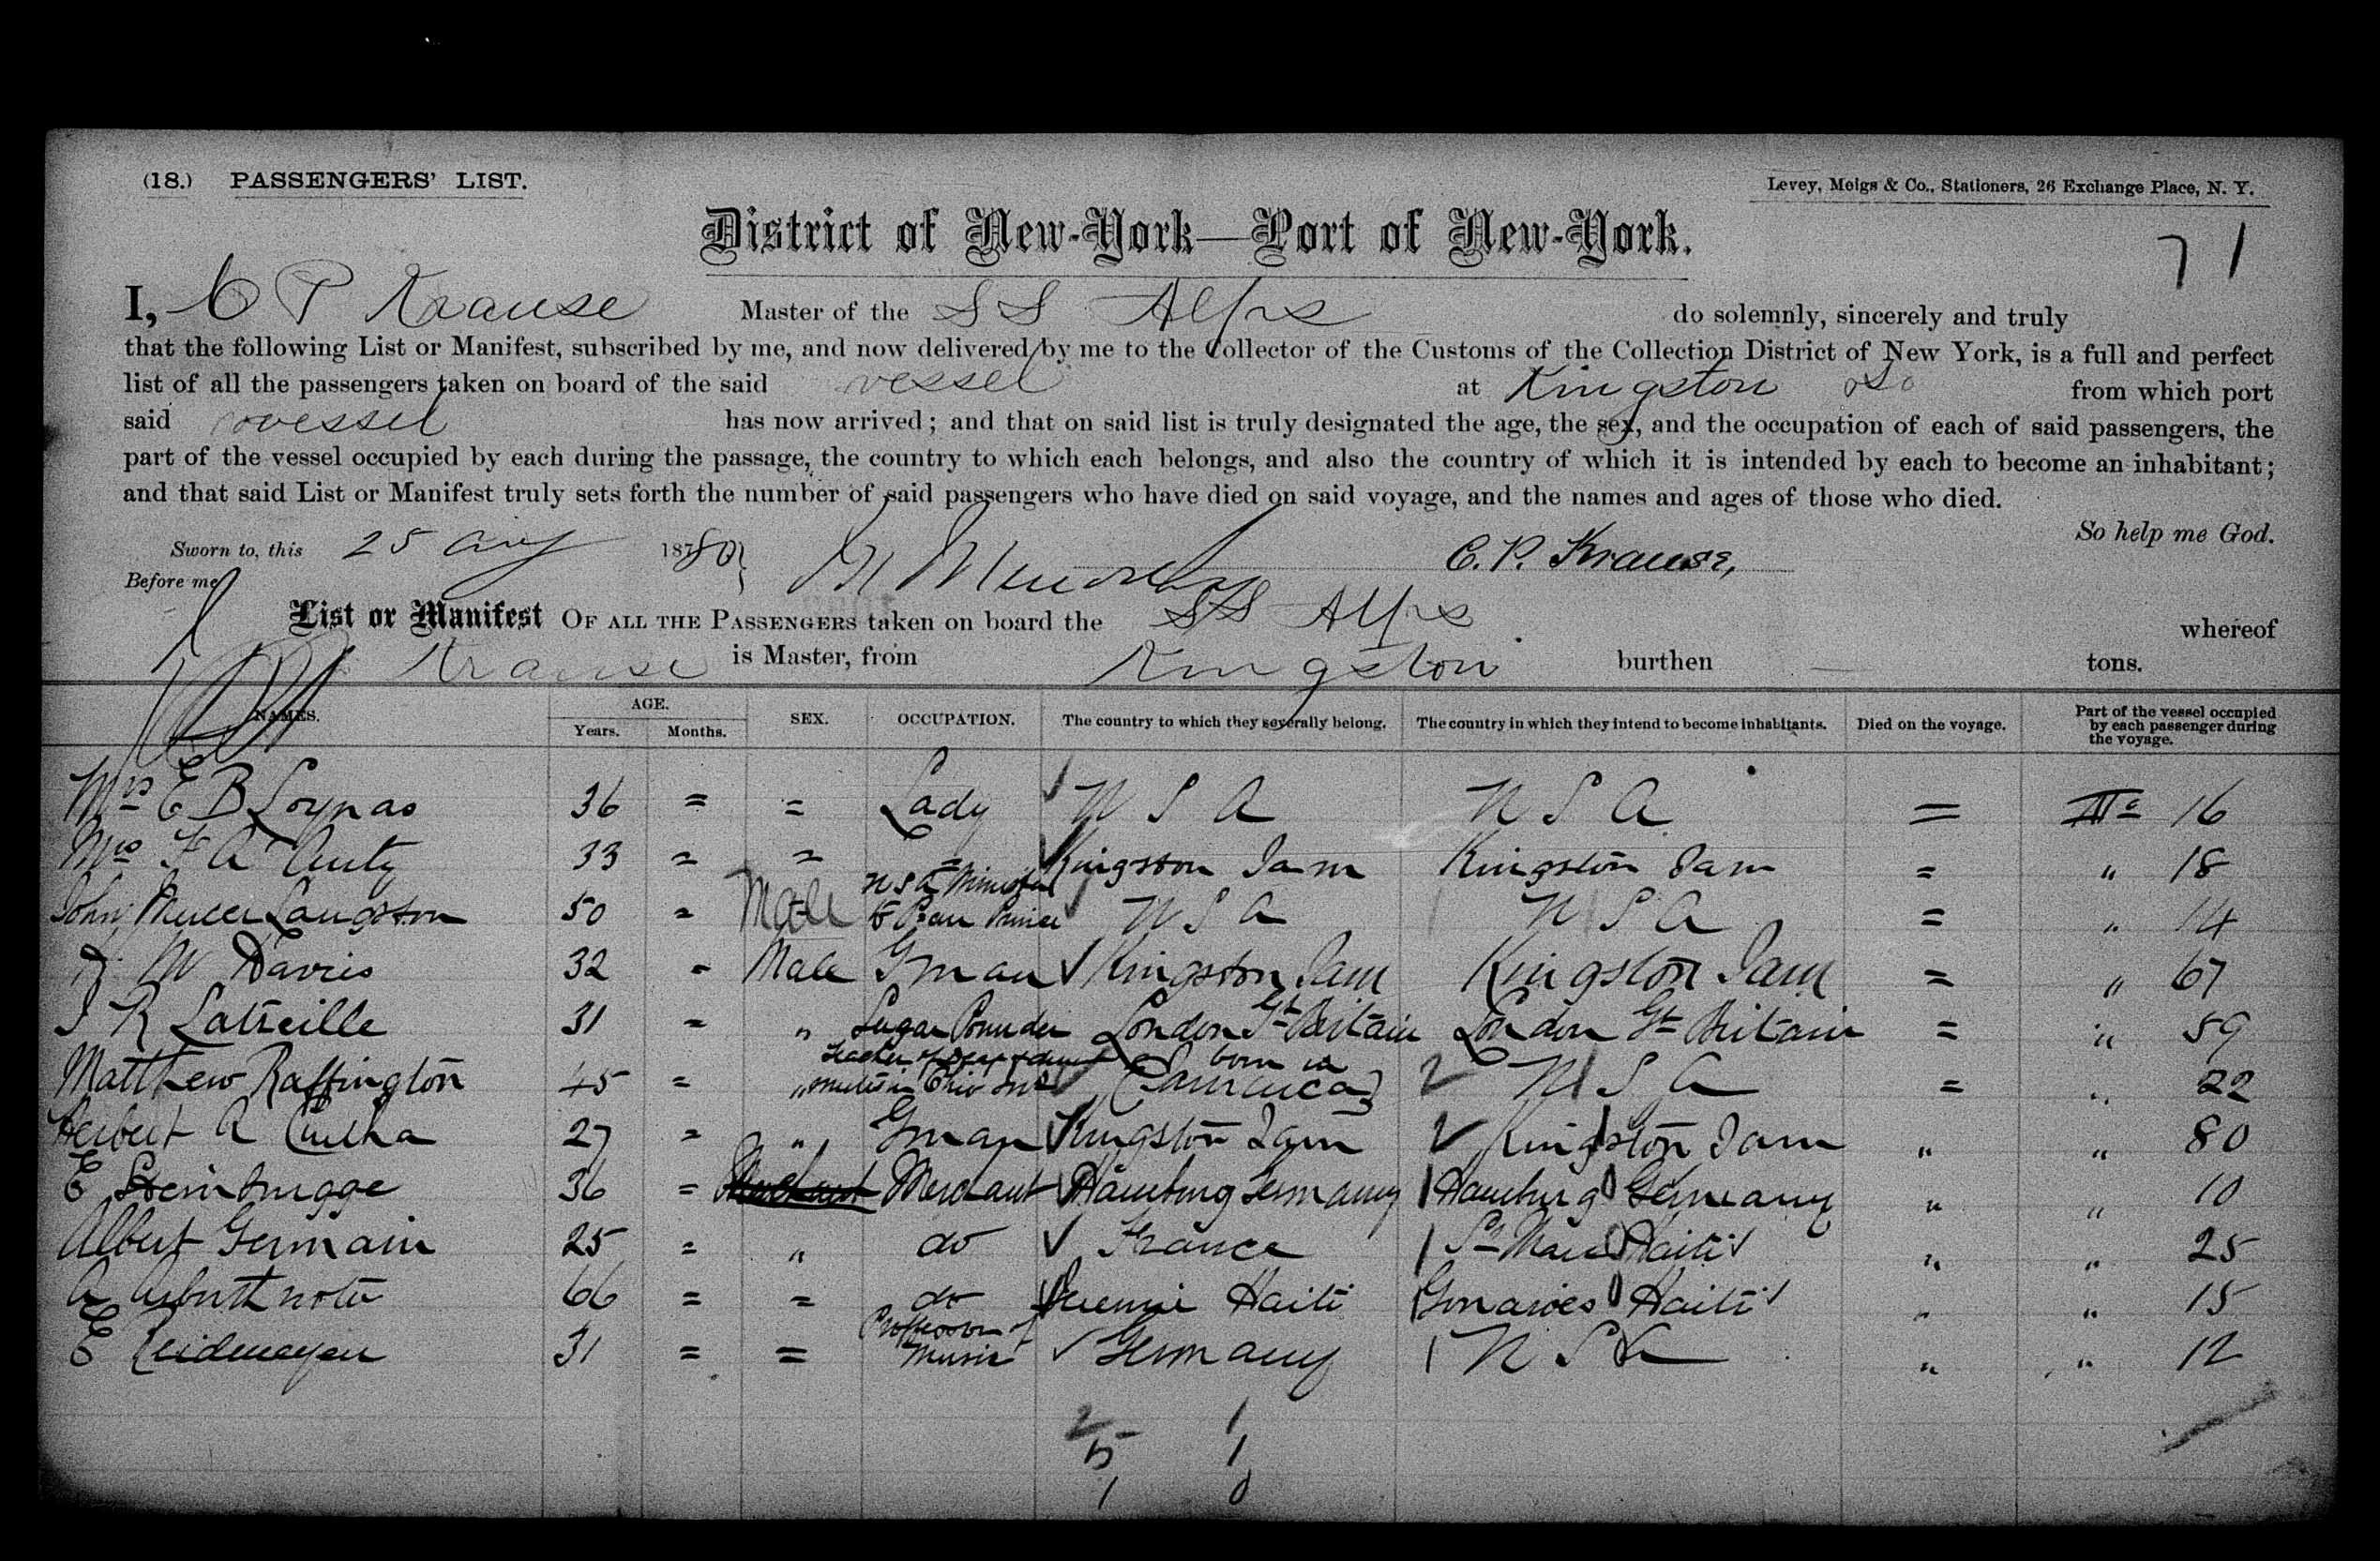 (18.) PASSENGERS' LIST.
Levey, Meigs & Co., Stationers, 26 Exchange Place, N. Y.
District of New-York—Port of New-York.
71
I, C P Krause Master of the SS Alps do solemnly, sincerely and truly
that the following List or Manifest, subscribed by me, and now delivered by me to the Collector of the Customs of the Collection District of New York, is a full and perfect
list of all the passengers taken on board of the said vessel at Kingston from which port
said vessel has now arrived; and that on said list is truly designated the age, the sex, and the occupation of each of said passengers, the
part of the vessel occupied by each during the passage, the country to which each belongs, and also the country of which it is intended by each to become an inhabitant;
and that said List or Manifest truly sets forth the number of said passengers who have died on said voyage, and the names and ages of those who died.
So help me God.
Sworn to, this 25 Aug 1880 C. P. Krause,
Before me
List or Manifest OF ALL THE PASSENGERS taken on board the SS Alps whereof
Krause is Master, from Kingston burthen — tons.
NAMES. AGE. Years. Months. SEX. OCCUPATION. The country to which they severally belong. The country in which they intend to become inhabitants. Died on the voyage. Part of the vessel occupied by each passenger during the voyage.
Mrs E B Loynas 36 = = Lady U S A U S A = 16
Mrs F A Auty 33 = = = Kingston Jam Kingston Jam = " 18
John Mercer Langston 50 = Male U S A Minister to Port Prince U S A U S A = " 14
W Davis 32 = Male Gman Kingston Jam Kingston Jam = " 67
J R Latreille 31 = " Sugar London Gt Britain London Gt Britain = " 59
Matthew Raffington 45 = " Teacher of Deaf & dumb mutes in Ohio born in Jamaica U S A = " 22
Herbert A Cunha 27 = " Gman Kingston Jam Kingston Jam " " 80
E Steinbrugge 36 = Merchant Merchant Hamburg Germany Hamburg Germany " " 10
Albert Germain 25 = " do France St Marc Haiti " " 25
A Arbuthnote 66 = = do Jeremie Haiti Gonaives Haiti " " 15
E Reidmeyer 31 = = Professor of Music Germany U S A " " 12
2 1
5 1
1 0